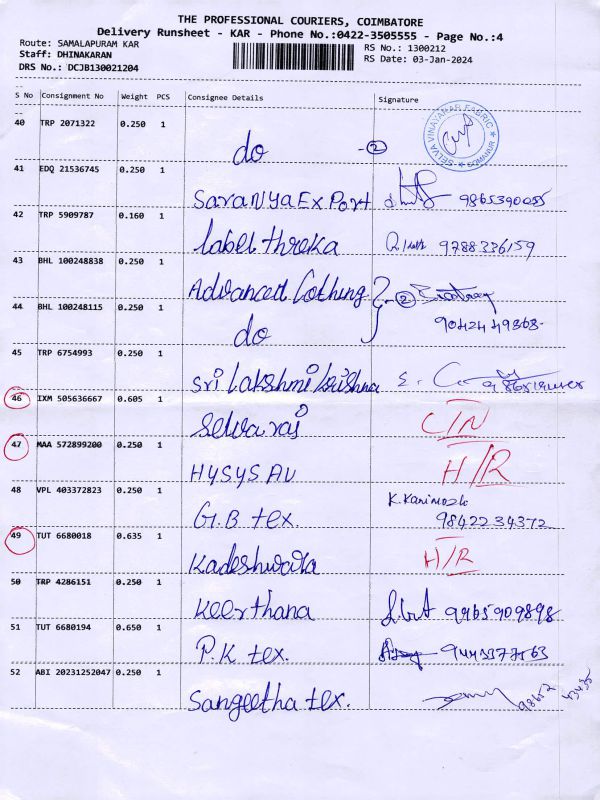 THE PROFESSIONAL COURIERS, COIMBATORE
Delivery Runsheet - KAR - Phone No.:0422-3505555 - Page No.:4
Route: SAMALAPURAM KAR
RS No.: 1300212
Staff: DHINAKARAN
RS Date: 03-Jan-2024
DRS No.: DCJB130021204
S No Consignment No Weight PCS Consignee Details Signature
40 TRP 2071322 0.250 1
do -②
SELVA VINAYAKAR FABRIC SOMANUR
41 EDQ 21536745 0.250 1
Saranya Export 9865390055
42 TRP 5909787 0.160 1
label threka 9788336159
43 BHL 100248838 0.250 1
Advanced Cothing - ②
44 BHL 100248115 0.250 1
do
45 TRP 6754993 0.250 1
Sri Lakshmi
46 IXM 505636667 0.605 1
Selvaraj C/N
47 MAA 572899200 0.250 1
HYSYS AU H/R
48 VPL 403372823 0.250 1
G.B tex. 9842234372
49 TUT 6680018 0.635 1
H/R
50 TRP 4286151 0.250 1
Keerthana 9965909898
51 TUT 6680194 0.650 1
P.K tex.
52 ABI 20231252047 0.250 1
Sangeetha tex.